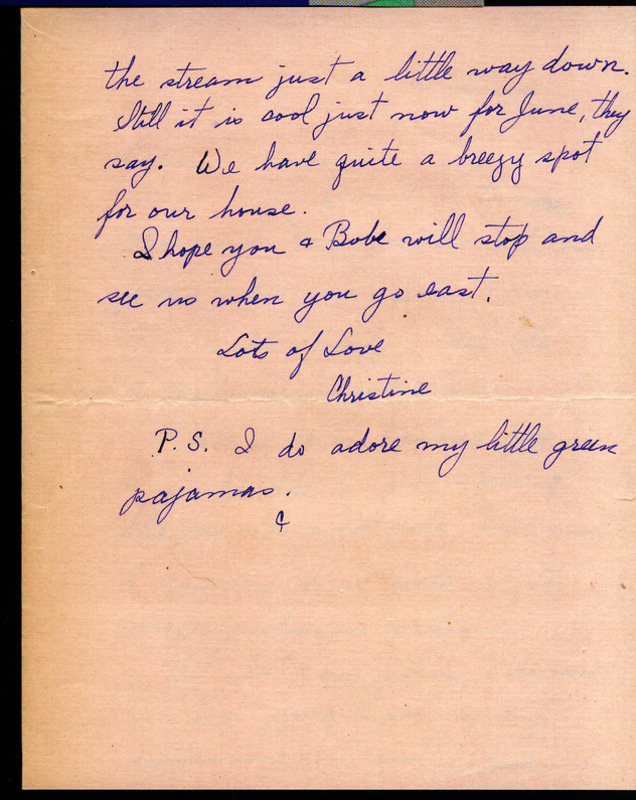 the stream just a little way down.
Still it is cool just now for June, they
say. We have quite a breezy spot
for our house.
I hope you & Bobe will stop and
see us when you go east.
Lots of Love
Christine
P.S. I do adore my little green
pajamas.
C